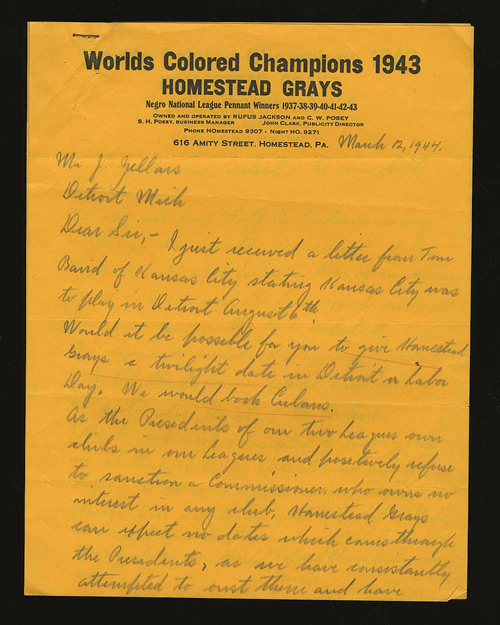 Worlds Colored Champions 1943
HOMESTEAD GRAYS
Negro National League Pennant Winners 1937-38-39-40-41-42-43
OWNED AND OPERATED BY RUFUS JACKSON AND C. W. POSEY
S. H. POSEY, BUSINESS MANAGER JOHN CLARK, PUBLICITY DIRECTOR
PHONE HOMESTEAD 9307 - NIGHT HO. 9271
616 AMITY STREET, HOMESTEAD, PA. March 12, 1944.
Mr J. Zellars
Detroit Mich
Dear Sir,- I just received a letter from Tom
Baird of Kansas City stating Kansas City was
to play in Detroit August 6th
Would it be possible for you to give Homestead
Grays a twilight date in Detroit on Labor
Day. We would book Cubans.
As the Presidents of our two Leagues own
clubs in our Leagues and positively refuse
to sanction a Commissioner, who owns no
interest in any club, Homestead Grays
can expect no dates which comes through
the Presidents, as we have consistantly
attempted to oust them and have